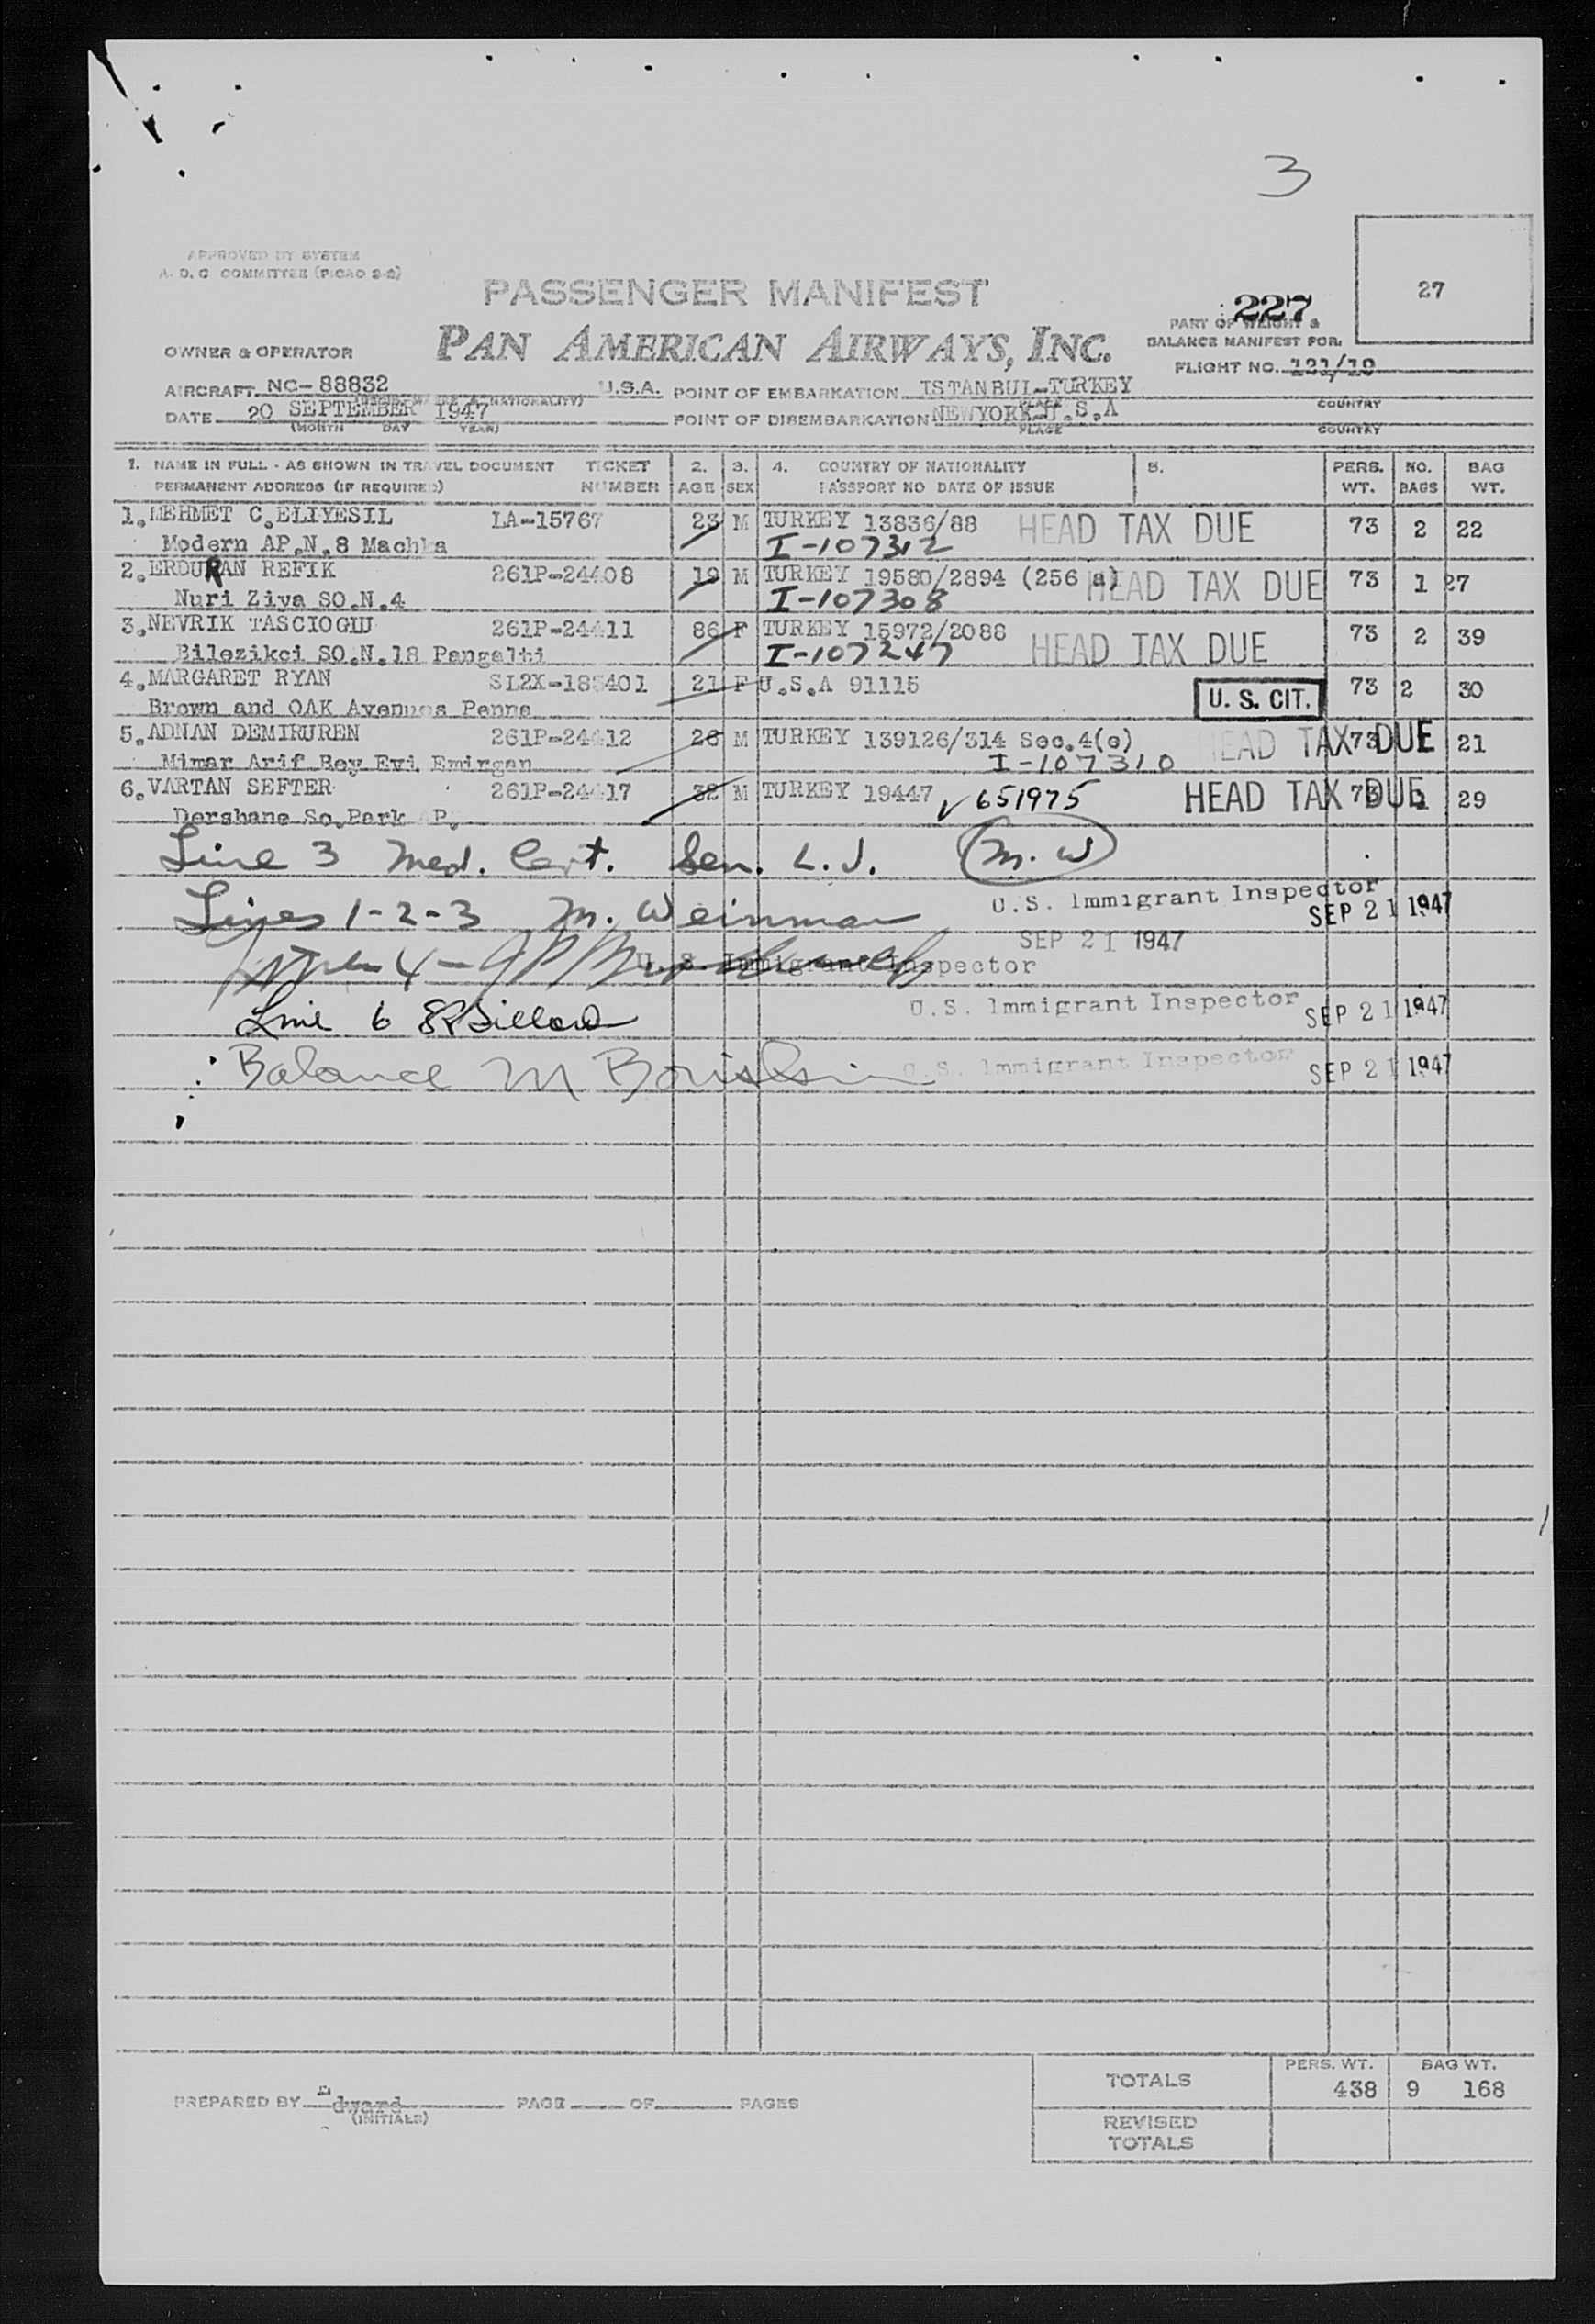 3
APPROVED BY SYSTEM
A. O. C COMMITTEE (PICAO 2-2)
27
PASSENGER MANIFEST
227
PART OF WEIGHT &
BALANCE MANIFEST FOR:
OWNER & OPERATOR
PAN AMERICAN AIRWAYS, INC.
FLIGHT NO. 121/19
AIRCRAFT NC-88832 U.S.A. POINT OF EMBARKATION ISTANBUL-TURKEY
PLACE COUNTRY
DATE 20 SEPTEMBER 1947 POINT OF DISEMBARKATION NEWYORK-U.S.A
(MONTH DAY YEAR) PLACE COUNTRY
1. NAME IN FULL - AS SHOWN IN TRAVEL DOCUMENT TICKET 2. 3. 4. COUNTRY OF NATIONALITY 5. PERS. NO. BAG
PERMANENT ADDRESS (IF REQUIRED) NUMBER AGE SEX PASSPORT NO DATE OF ISSUE WT. BAGS WT.
1. MEHMET C.ELIYESIL LA-15767 23 M TURKEY 13836/88 HEAD TAX DUE 73 2 22
Modern AP.N.8 Machka I-107312
2. ERDURAN REFIK 261P-24408 19 M TURKEY 19580/2894 (256 a) HEAD TAX DUE 73 1 27
Nuri Ziya SO.N.4 I-107308
3. NEVRIK TASCIOGLU 261P-24411 86 F TURKEY 15972/2088 HEAD TAX DUE 73 2 39
Bilezikci SO.N.18 Pangalti I-107247
4. MARGARET RYAN SL2X-183401 21 F U.S.A 91115 U. S. CIT. 73 2 30
Brown and OAK Avenues Penna
5. ADNAN DEMIRUREN 261P-24412 26 M TURKEY 139126/314 Sec.4(e) HEAD TAX DUE 73 21
Mimar Arif Bey Evi Emirgan I-107310
6. VARTAN SEFTER 261P-24417 32 M TURKEY 19447 √ 651975 HEAD TAX DUE 73 29
Dershane So.Park AP.
Line 3 Med. Cert. Sen. L.J. M. W
Lines 1-2-3 M. Weinman U.S. Immigrant Inspector SEP 21 1947
4 - SEP 21 1947
U. S. Immigrant Inspector
Line 6 U.S. Immigrant Inspector SEP 21 1947
Balance M U.S. Immigrant Inspector SEP 21 1947
TOTALS PERS. WT. BAG WT.
438 9 168
PREPARED BY Edward PAGE OF PAGES
(INITIALS)
REVISED
TOTALS